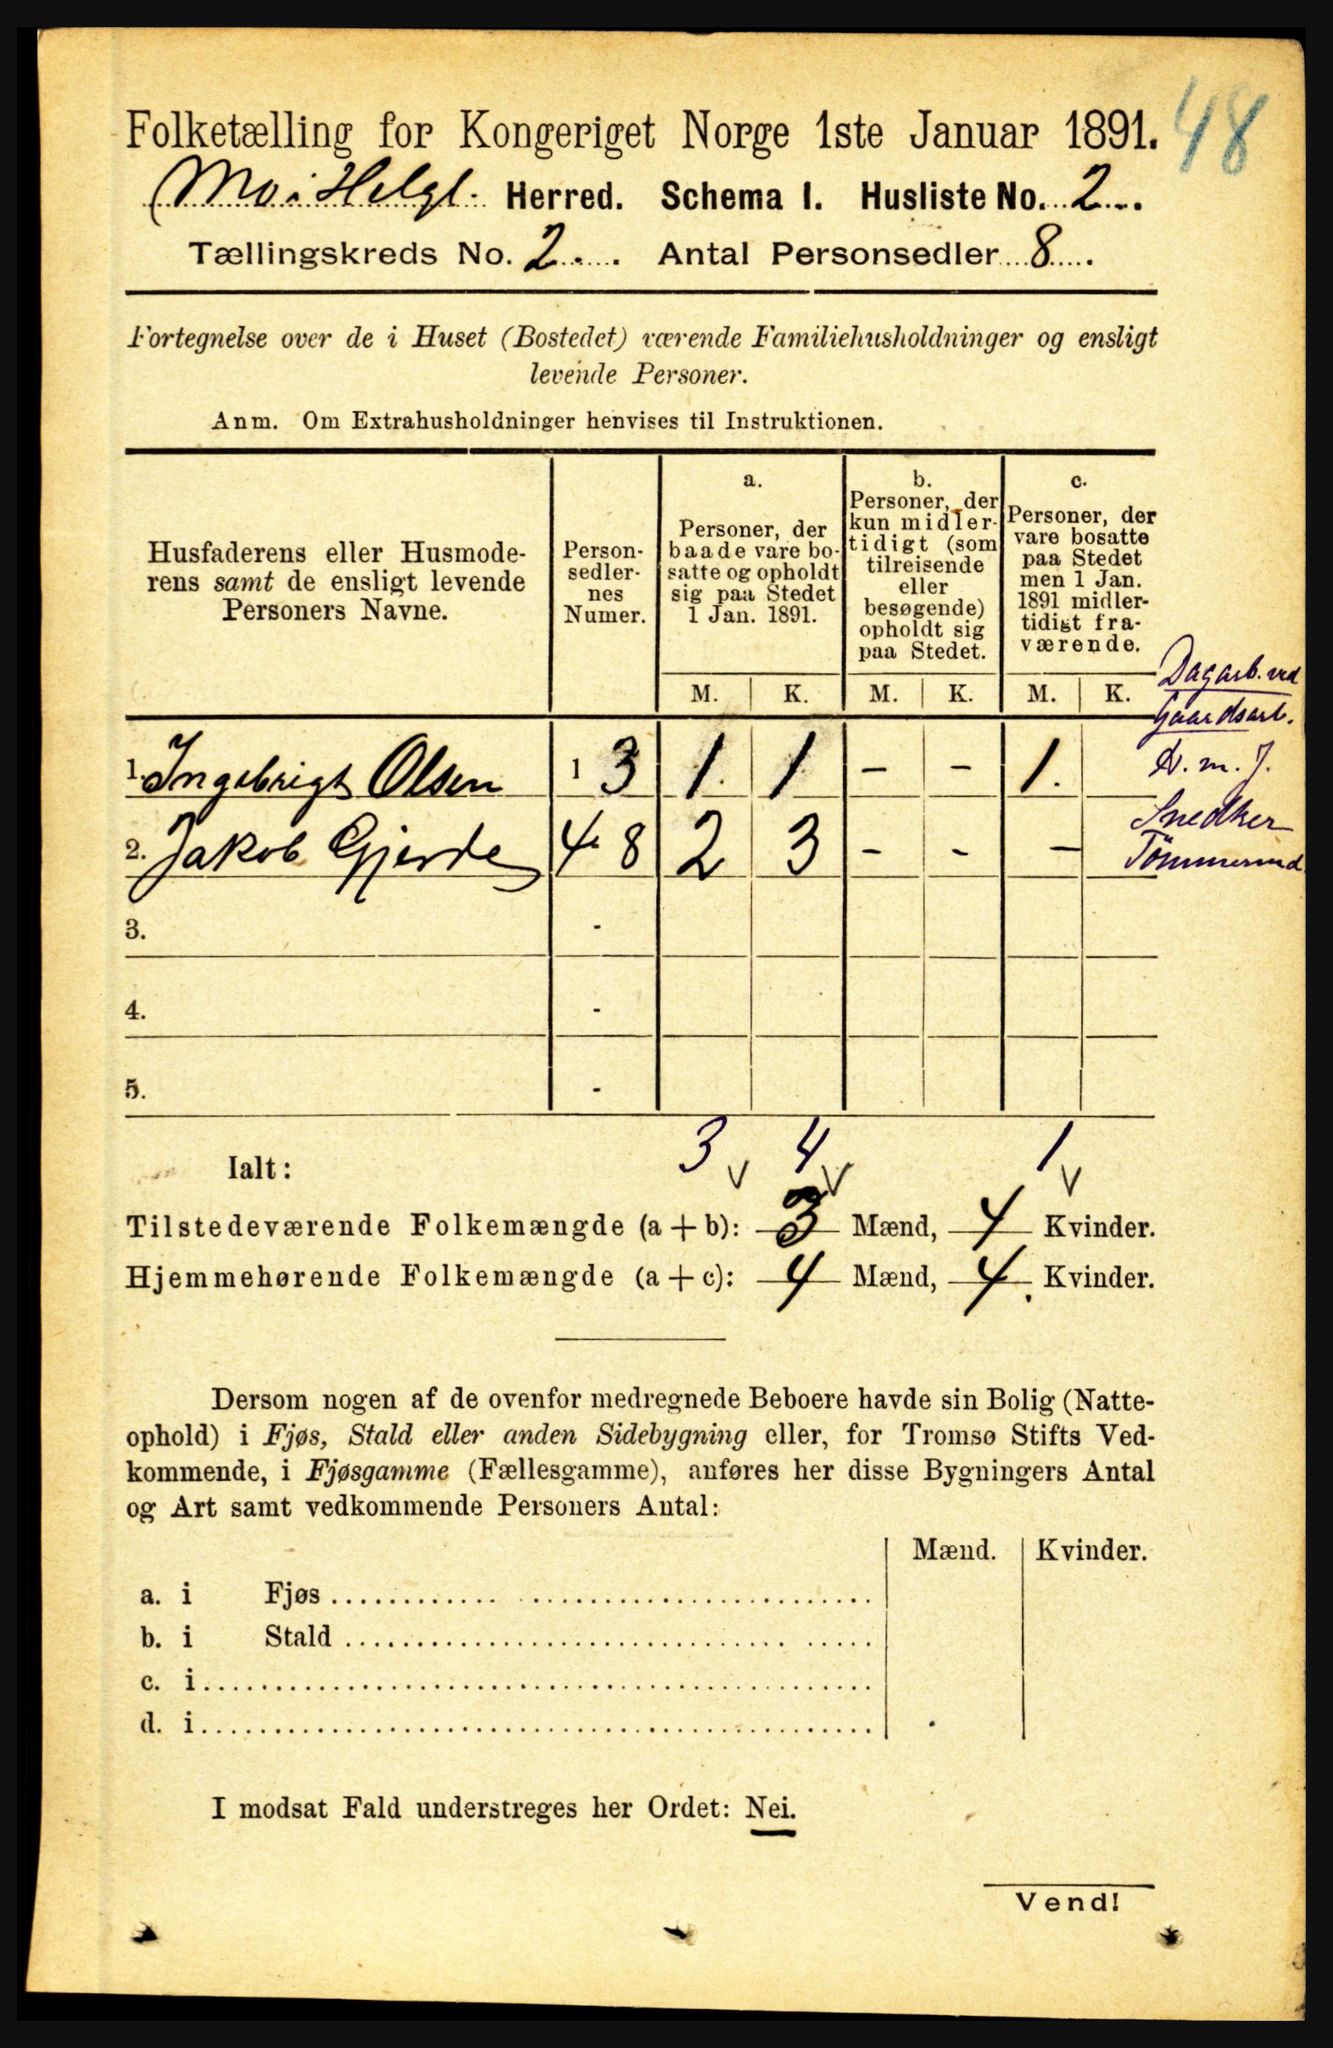 48
Folketælling for Kongeriget Norge 1ste Januar 1891.
Mo i Helgl. Herred. Schema I. Husliste No. 2
Tællingskreds No. 2. Antal Personsedler 8
Fortegnelse over de i Huset (Bostedet) værende Familiehusholdninger og ensligt
levende Personer.
Anm. Om Extrahusholdninger henvises til Instruktionen.
Husfaderens eller Husmode-
rens samt de ensligt levende
Personers Navne.
Person-
sedler-
nes
Numer.
a.
Personer, der
baade vare bo-
satte og opholdt
sig paa Stedet
1 Jan. 1891.
b.
Personer, der
kun midler-
tidigt (som
tilreisende
eller
besøgende)
opholdt sig
paa Stedet.
c.
Personer, der
vare bosatte
paa Stedet
men 1 Jan.
1891 midler-
tidigt fra-
værende.
M. K. M. K. M. K.
Dagarb. ved
Gaardsarb.
1. Ingebrigt Olsen 1 3 1. 1 - - 1.
2. Jakob Gjerde 4 - 8 2 3 - - -
Snedker
Tømmermd
3. -
4. -
5. -
Ialt: 3 4 1
Tilstedeværende Folkemængde (a + b): 3 Mænd, 4 Kvinder.
Hjemmehørende Folkemængde (a + c): 4 Mænd, 4 Kvinder.
Dersom nogen af de ovenfor medregnede Beboere havde sin Bolig (Natte-
ophold) i Fjøs, Stald eller anden Sidebygning eller, for Tromsø Stifts Ved-
kommende, i Fjøsgamme (Fællesgamme), anføres her disse Bygningers Antal
og Art samt vedkommende Personers Antal:
Mænd. Kvinder.
a. i Fjøs
b. i Stald
c. i
d. i
I modsat Fald understreges her Ordet: Nei.
Vend!